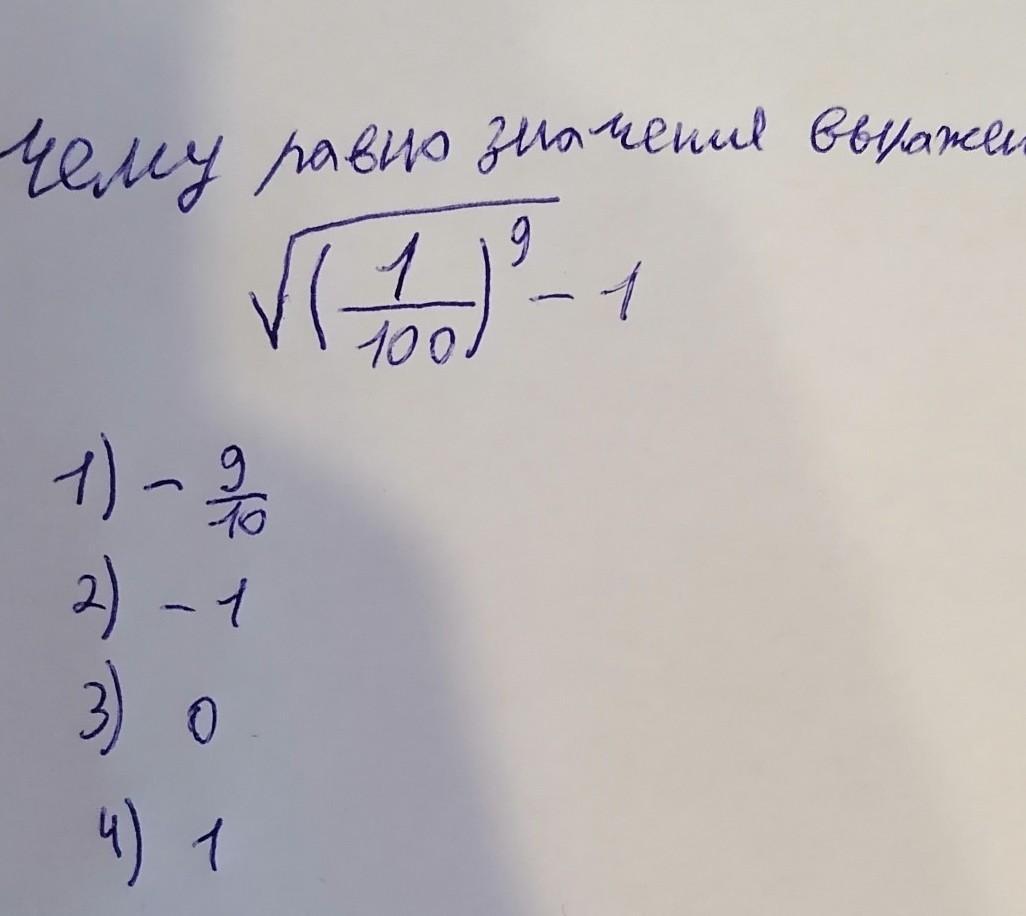 чему равно значения выражен
√(1/100)^9 - 1
1) - 9/10
2) - 1
3) 0
4) 1